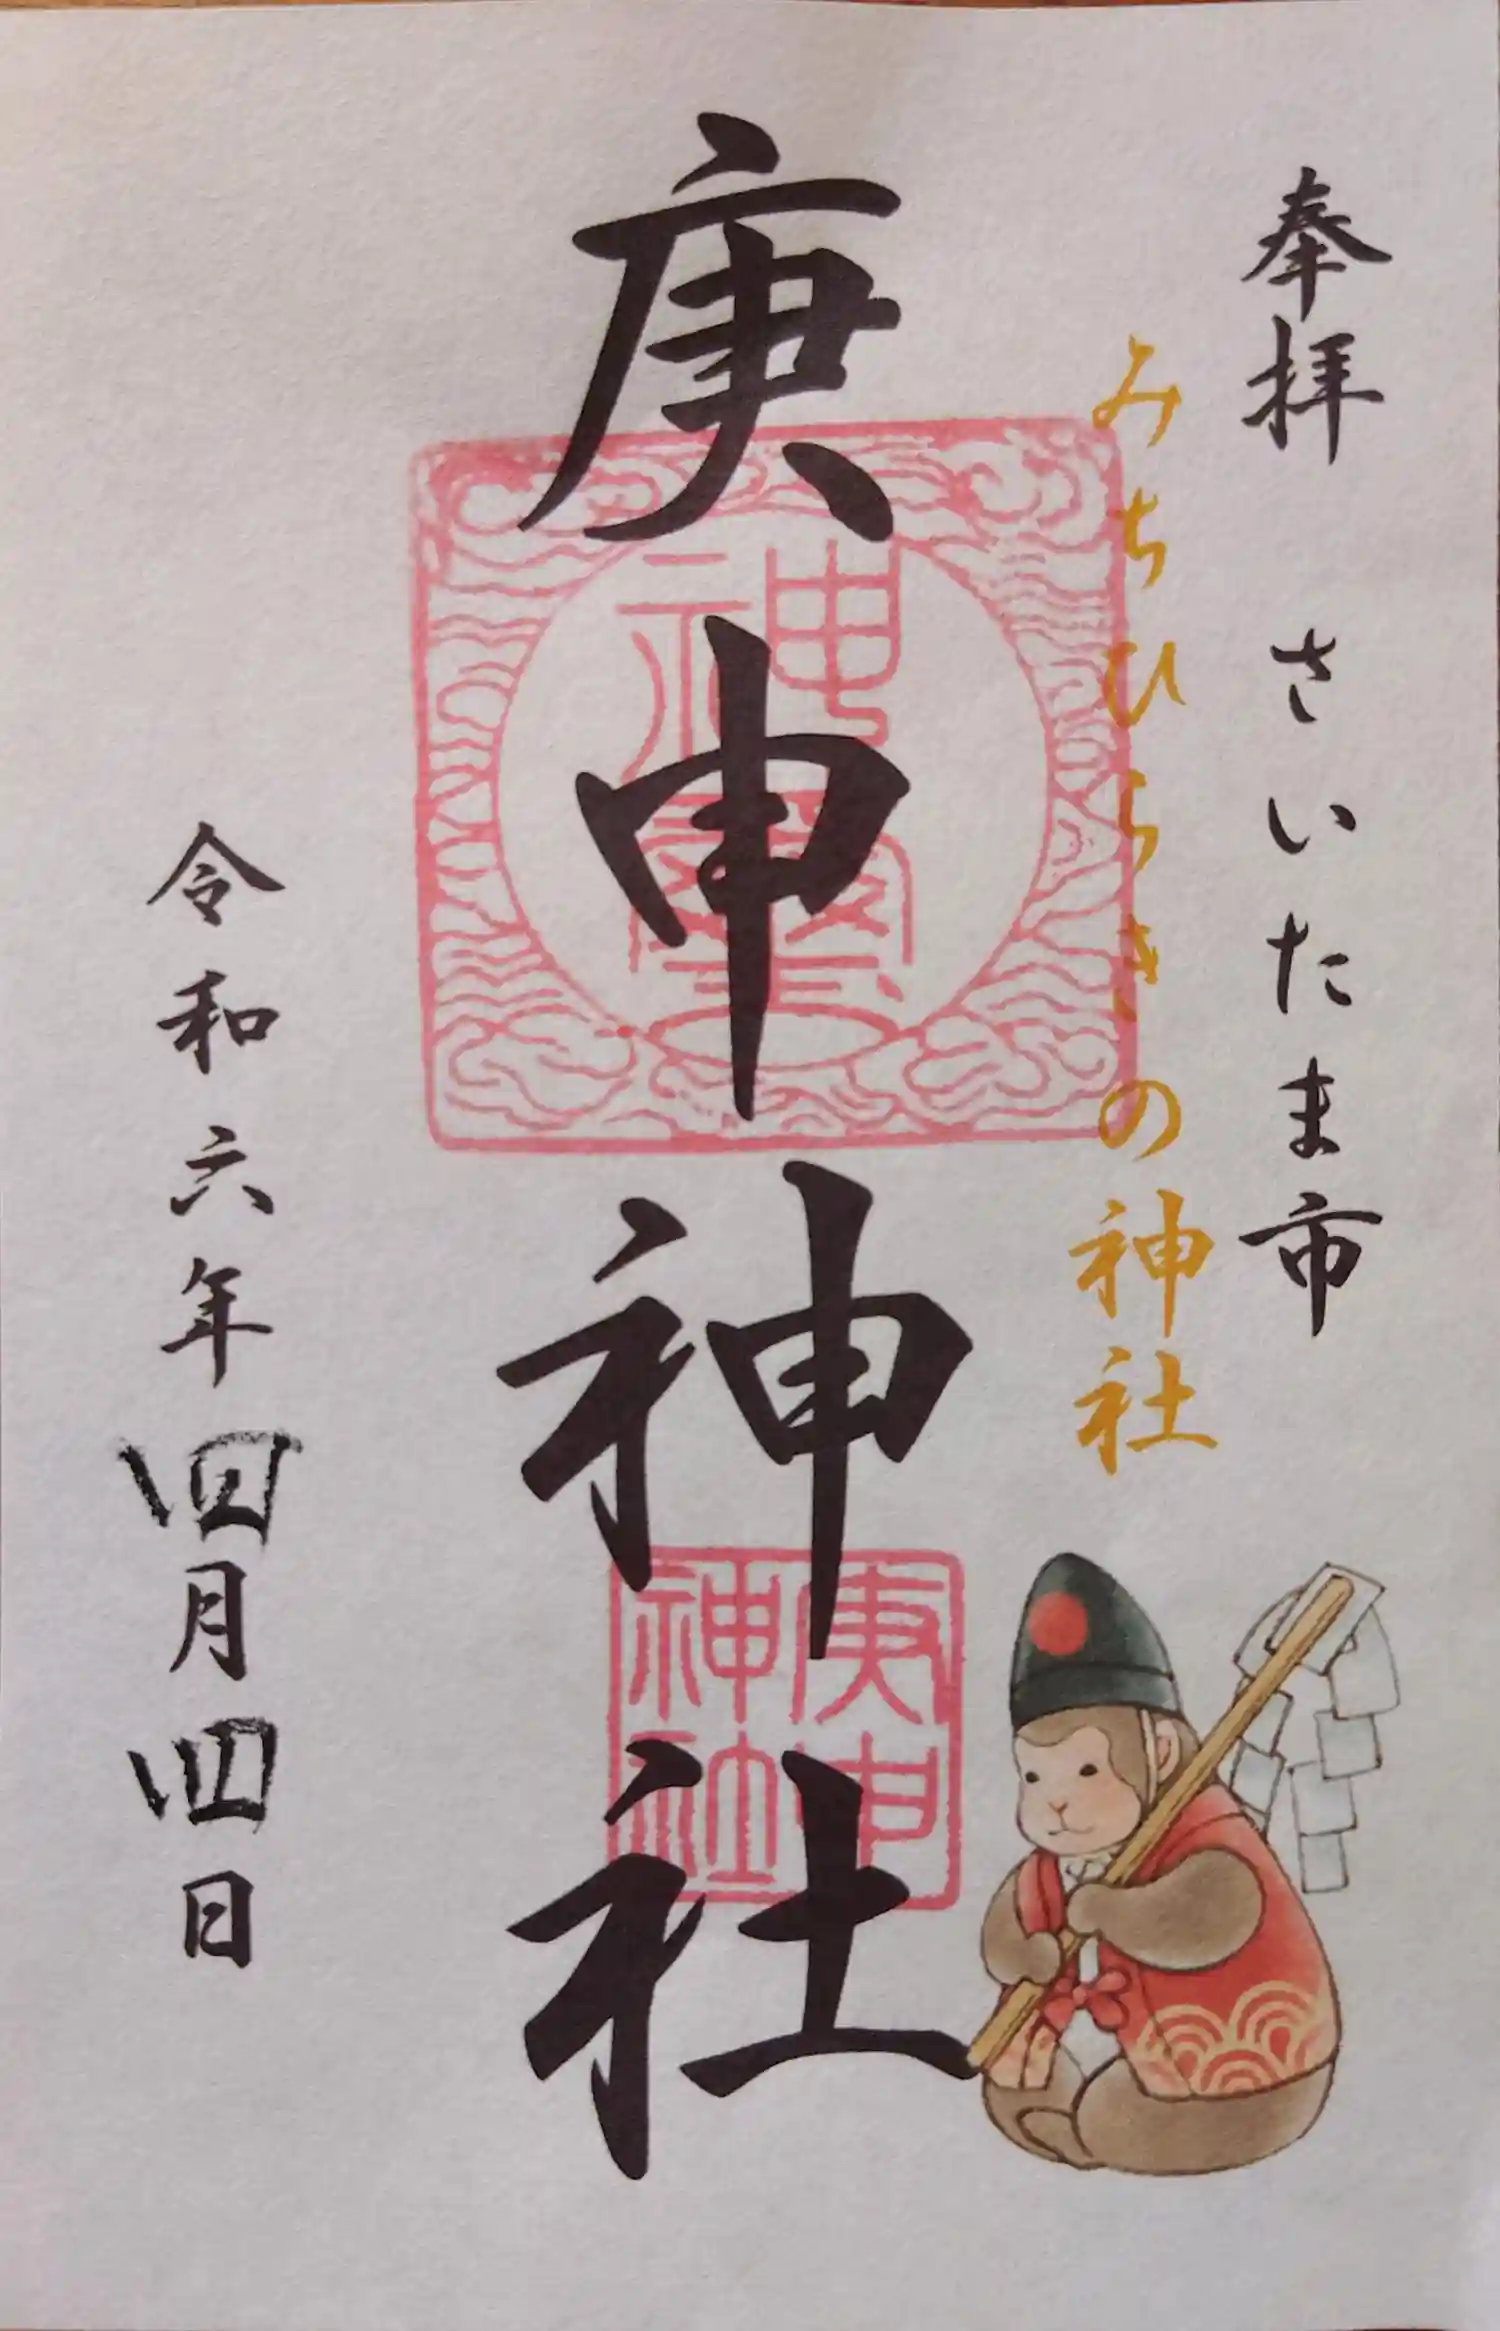 奉拝 さいたま市
みちひらきの神社
庚申神社
庚申
神社
令和六年四月四日